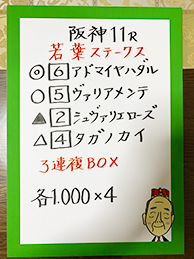 阪神11R
若葉ステークス
◎6アドマイヤハダル
○5ヴァリアメンテ
▲2シュヴァリエローズ
△4タガノカイ
3連複BOX
各1.000×4